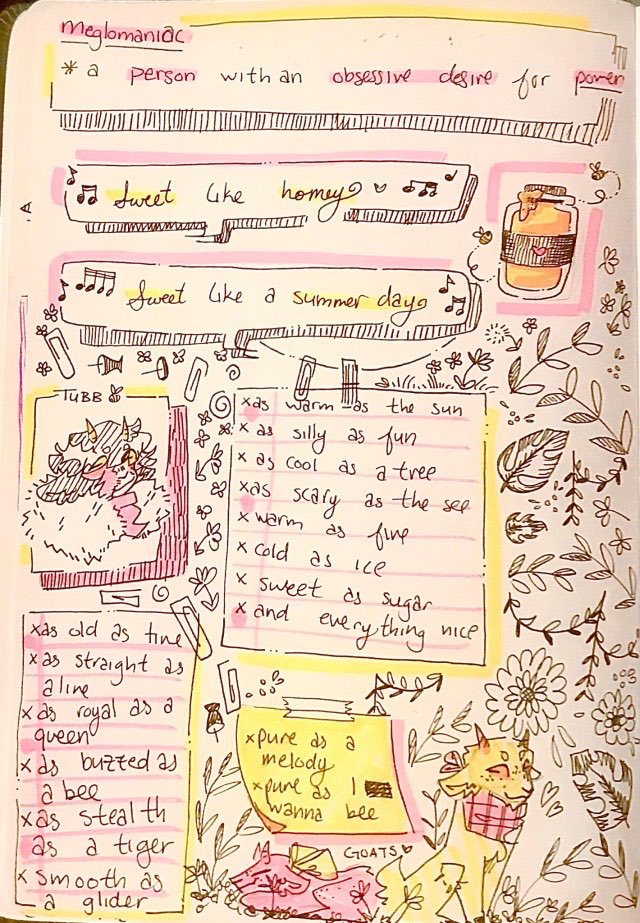 meglomaniac
* a person with an obsessive desire for power
Sweet like honey
Sweet like a summer day
TUBB
x as warm as the sun
x as silly as fun
x as cool as a tree
x as scary as the see
x warm as fire
x cold as ice
x sweet as sugar
x and everything nice
x as old as time
x as straight as
a line
x as royal as a
queen
x as buzzed as
a bee
x as stealth
as a tiger
x smooth as
a glider
x pure as a
melody
x pure as I
wanna bee
GOATS